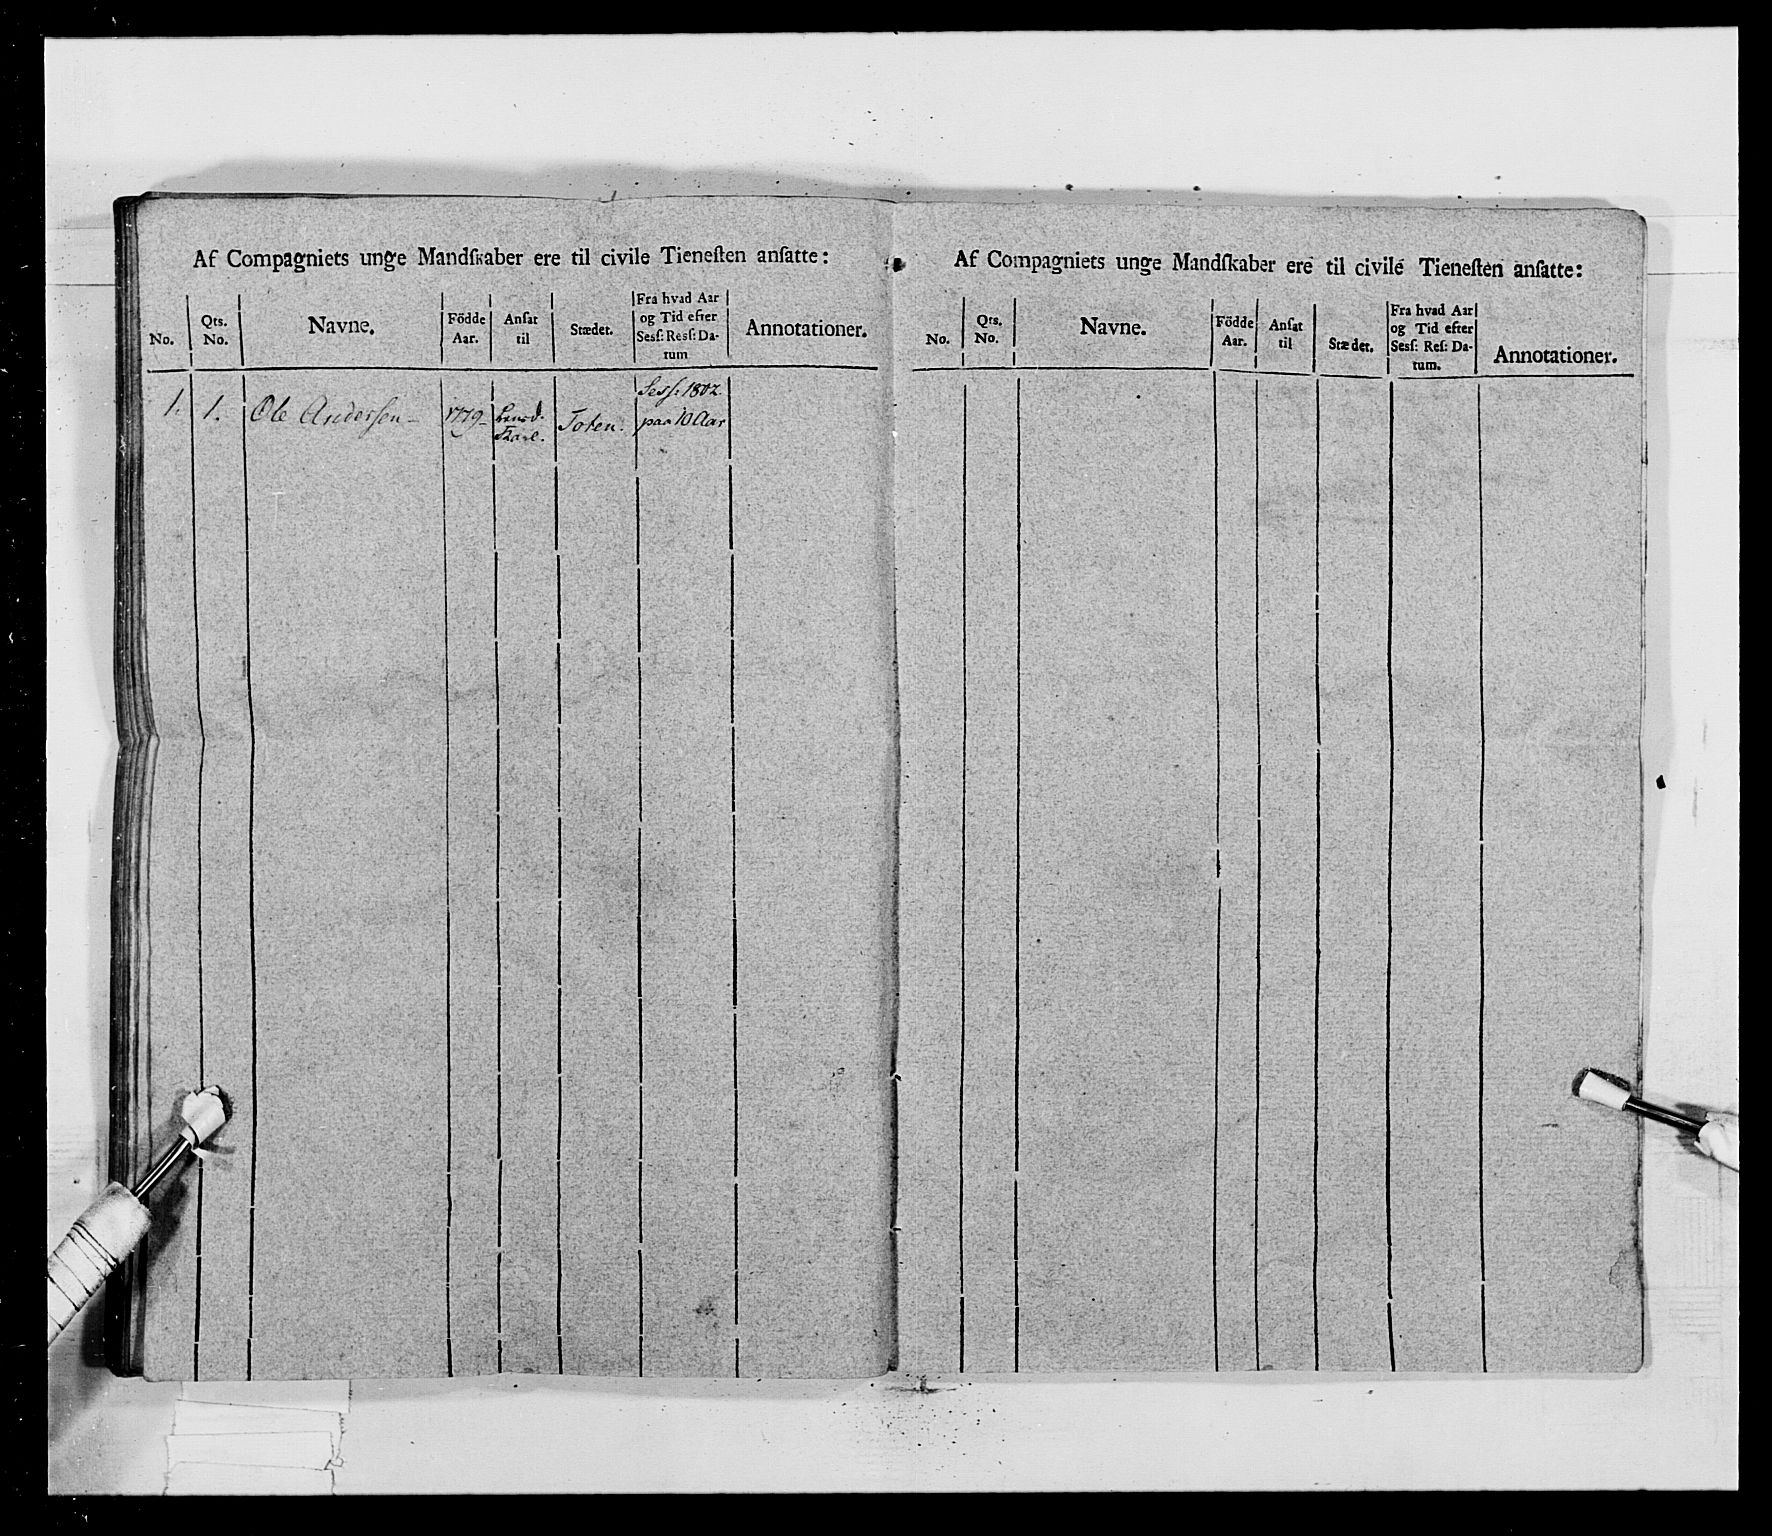 Af Compagniets unge Mandſkaber ere til civile Tieneſten anſatte:
No.
Qts. No.
Navne.
Födde Aar.
Anſat til
Stædet.
Fra hvad Aar
og Tid efter
Sesſ: Resſ: Da-
tum
Annotationer.
1. 1. Ole Andersen 1779 Toten. Sesſ: 1802. paa 10 Aar
Af Compagniets unge Mandſkaber ere til civile Tieneſten anſatte:
No.
Qts. No.
Navne.
Födde Aar.
Anſat til
Stædet.
Fra hvad Aar
og Tid efter
Sesſ: Reſ: Da-
tum.
Annotationer.